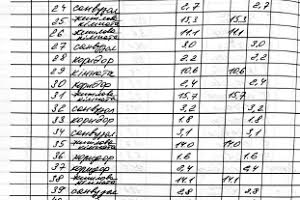 24 санвузол 2,7 2,7
25 житлова кімната 15,3 15,3
26 житлова кімната 11,1 11,1
27 санвузол 3,0 3,0
28 коридор 2,2 2,2
29 кімната 10,6 10,6
30 коридор 2,4 2,4
31 житлова кімната 15,7 15,7
32 санвузол 3,2 3,2
33 коридор 1,8 1,8
34 санвузол 3,1 3,1
35 житлова кімната 14,0 14,0
36 коридор 1,6 1,6
37 коридор 2,4 2,4
38 житлова кімната 14,1 14,1
39 санвузол 2,8 2,8